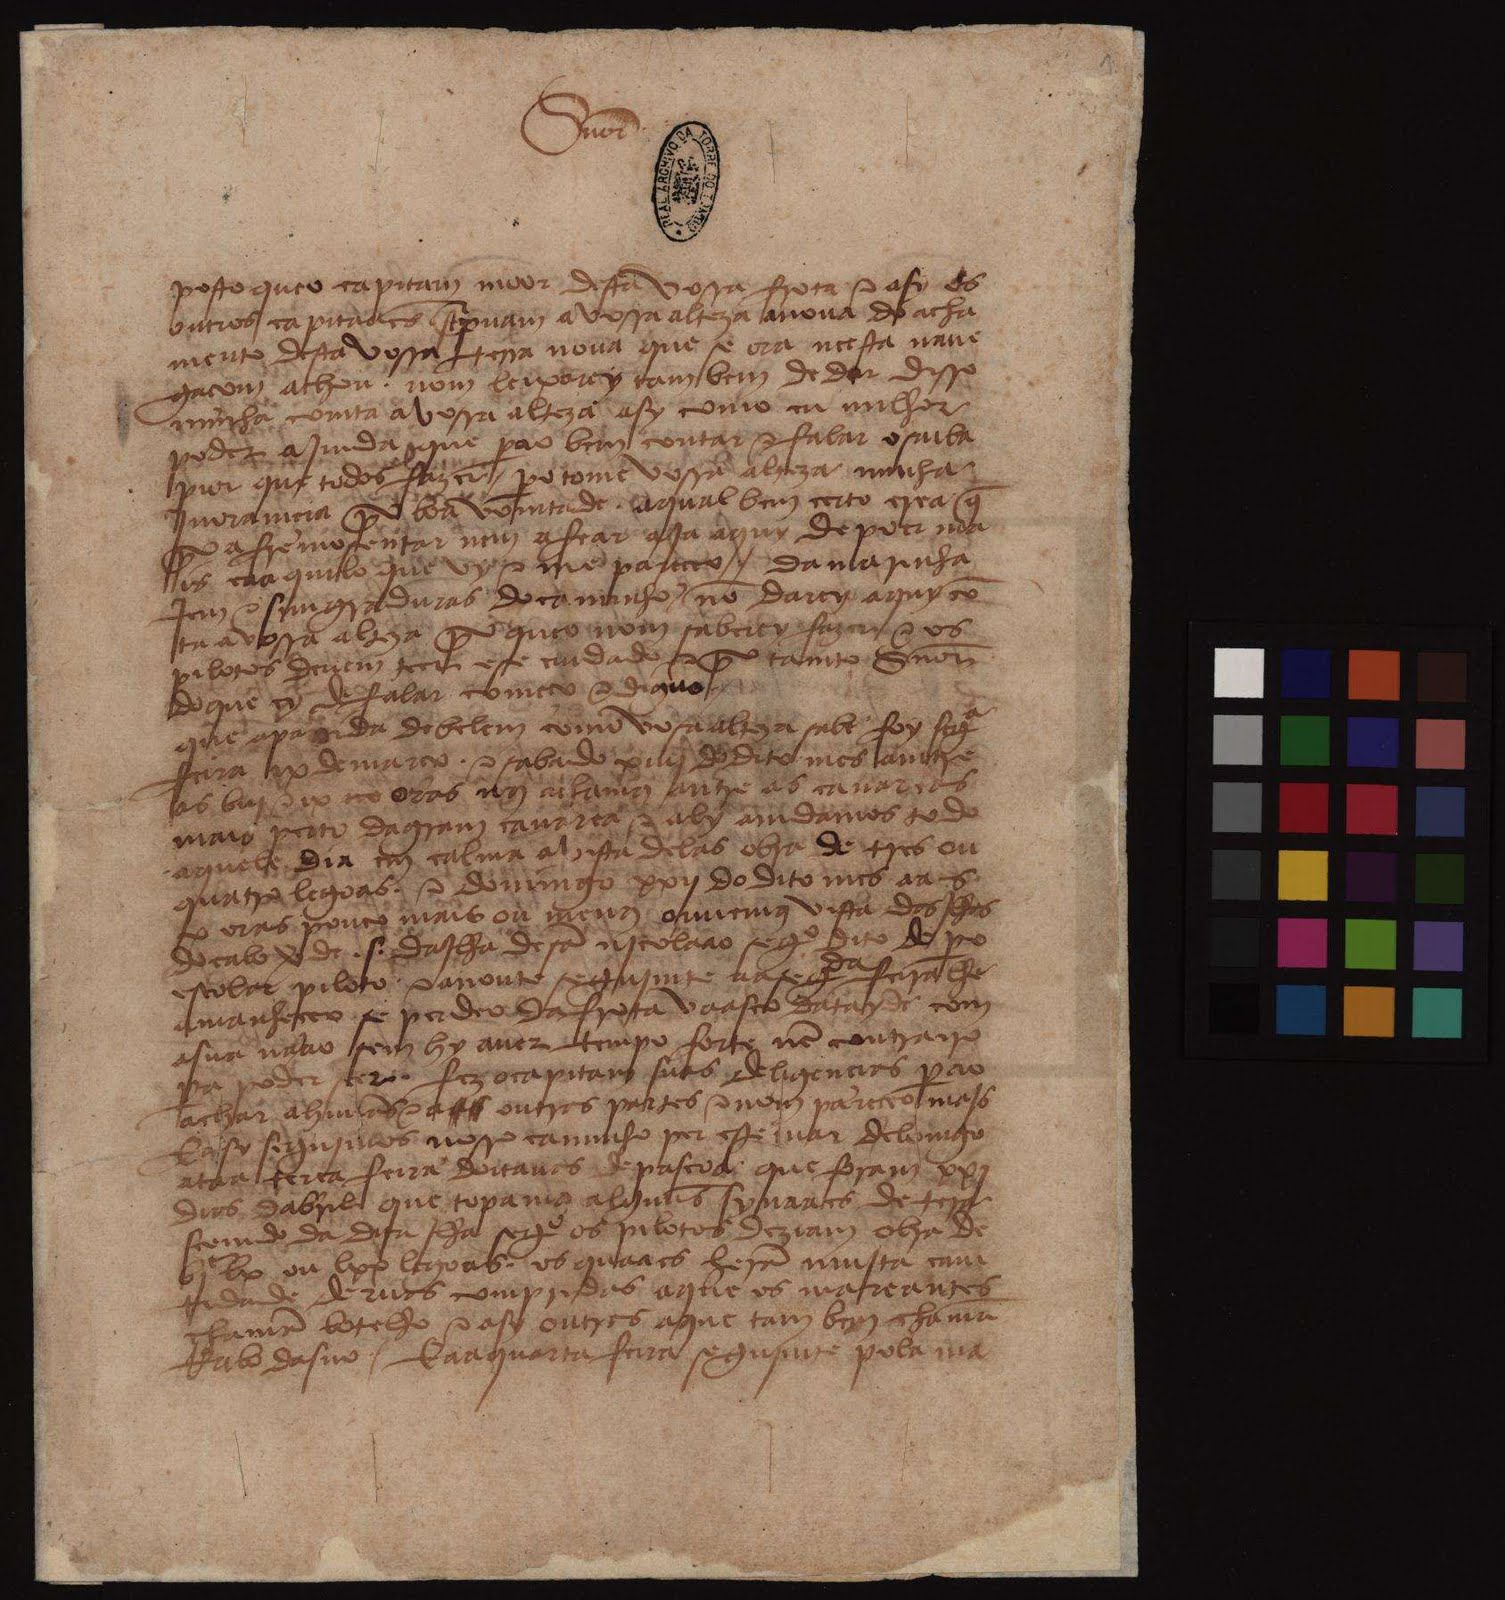 Snor
REAL ARCHIVO DA TORRE DO TOMBO
posto queo capitam moor desta vossa frota e asy os
outros capitaães screpuam a vossa alteza a noua do acha
mento desta vossa terra noua que se ora neesta naue
gaçom achou. nom leixarey tambem de dar disso
minha comta a vossa alteza asy como eu milhor
poder ajmda que pera o bem contar e falar o saiba
pior que todos fazer / pero tome vossa alteza minha
jnoramçia por boa vomtade. aqual bem certo crea que
por afremosentar nem afear aja aquy de poer ma
is ca aquilo que vy e me pareçeo / da marinha
jem e simgraduras do caminho / nõ darey aquy cõ
ta a vossa alteza por queo nom saberey fazer e os
pilotos deuem teer ese cuidado e por tamto Snor
do que ey de falar começo e diguo /
que apartida de belem como vosa alteza sabe foy segª
feira ix de março. e sabado xiiij do dito mes amtre
as biij e ix oras nos achamos antre as canareas
mais perto da gram canarea e aly amdamos todo
aquele dia em calma a vista delas obra de tres ou
quatro legoas. e domingo xxij do dito mes aas
x oras pouco mais ou menos ouuemos vista das jlhas
do cabo verde .s. da jlha de sã njcolaao segº dito de pº
escolar piloto. e a noute segujmte aa segda feira lhe
amanheceo se perdeo da frota vaasco datayde com
a sua naao sem hy auer tempo forte nẽ contrairo
pera poder seer. fez o capitam suas deligençias pera o
achar a huũas e a outras partes e nom pareçeo majs
E asy segujmos nosso caminho per este mar de lomgo
ataa terça feira doitauas de pascoa que foram xxj
dias dabril que topamos alguũs synaaes de tera
seemdo da dita jlha segº os pilotos deziam obra de
bjc lx ou lxx legoas. os quaaes herã muita cam
tidade deruas compridas aque os mareantes
chamã botelho e asy outras aque tambem chamã
Rabo dasno / E aa quarta feira segujmte pola ma